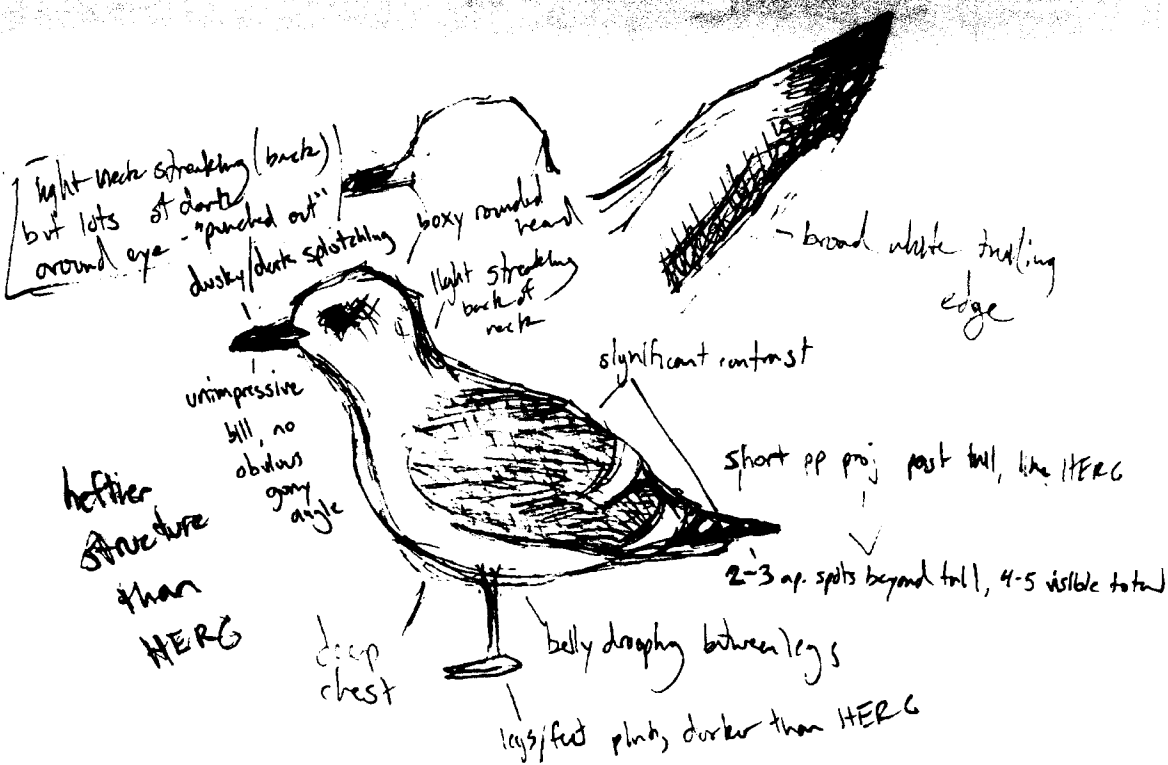 light neck streaking (back)
but lots of dark
around eye - "punched out"
dusky/dark splotching
boxy rounded
head
light streaking
back of
neck
- broad white trailing
edge
significant contrast
unimpressive
bill, no
obvious
gony
angle
short pp proj past tail, like HERG
2-3 ap. spots beyond tail, 4-5 visible total
heftier
structure
than
HERG
deep
chest
belly drooping between legs
legs/feet pink, darker than HERG